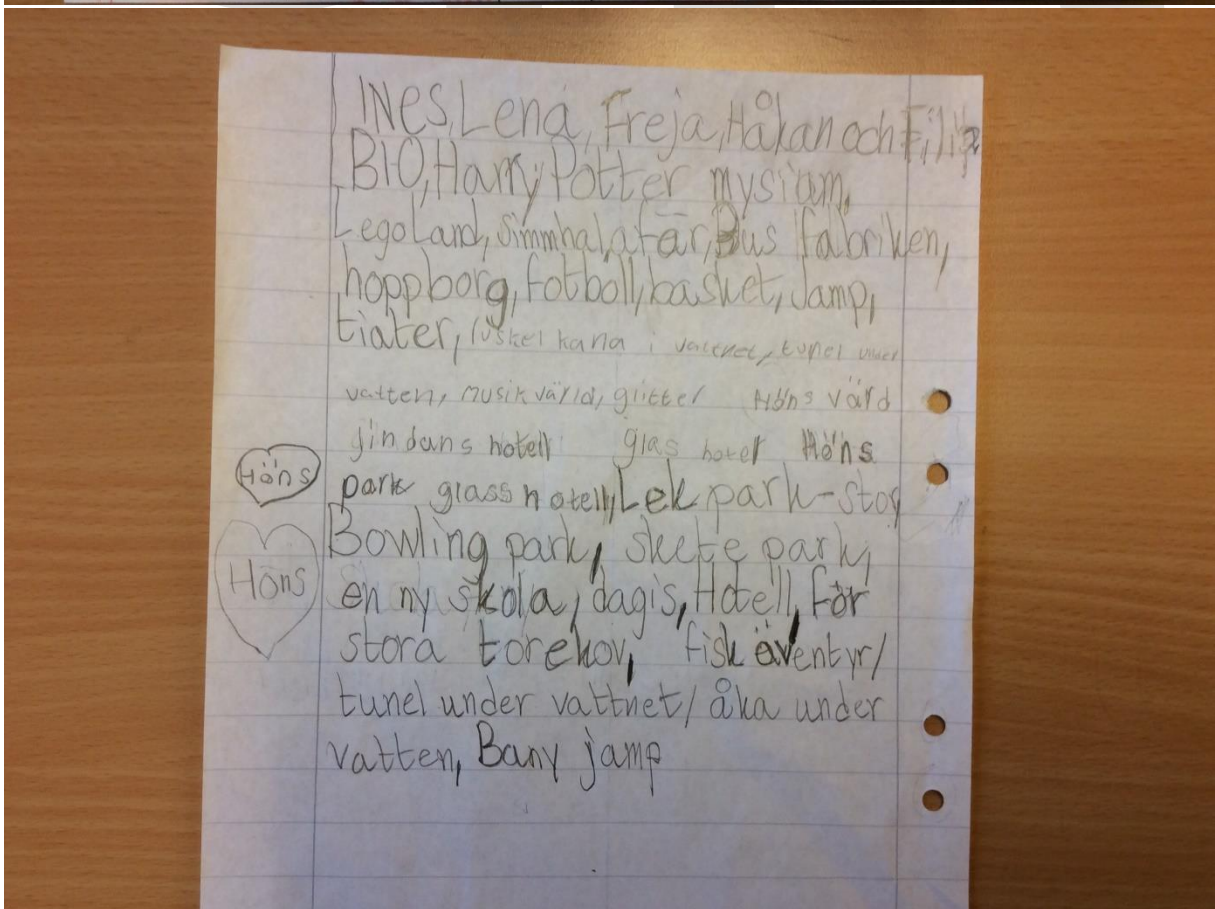 INES, Lena, Freja, Håkan och Filip
BIO, Harry Potter mysiam,
Legoland, simmhal, afär, Bus fabriken,
hoppborg, fotboll, basket, Jamp,
tiater, kana i vattnet, tunel under
vatten, musik värld, glitter Höns värd
jindans hotell glas hotel Höns
park glass hotell, Lek park-stor
Bowling park, skete park,
en ny skola, dagis, Hotell, för
stora torekov, fisk äventyr/
tunel under vattnet/ åka under
vatten, Bany jamp
Höns
Höns